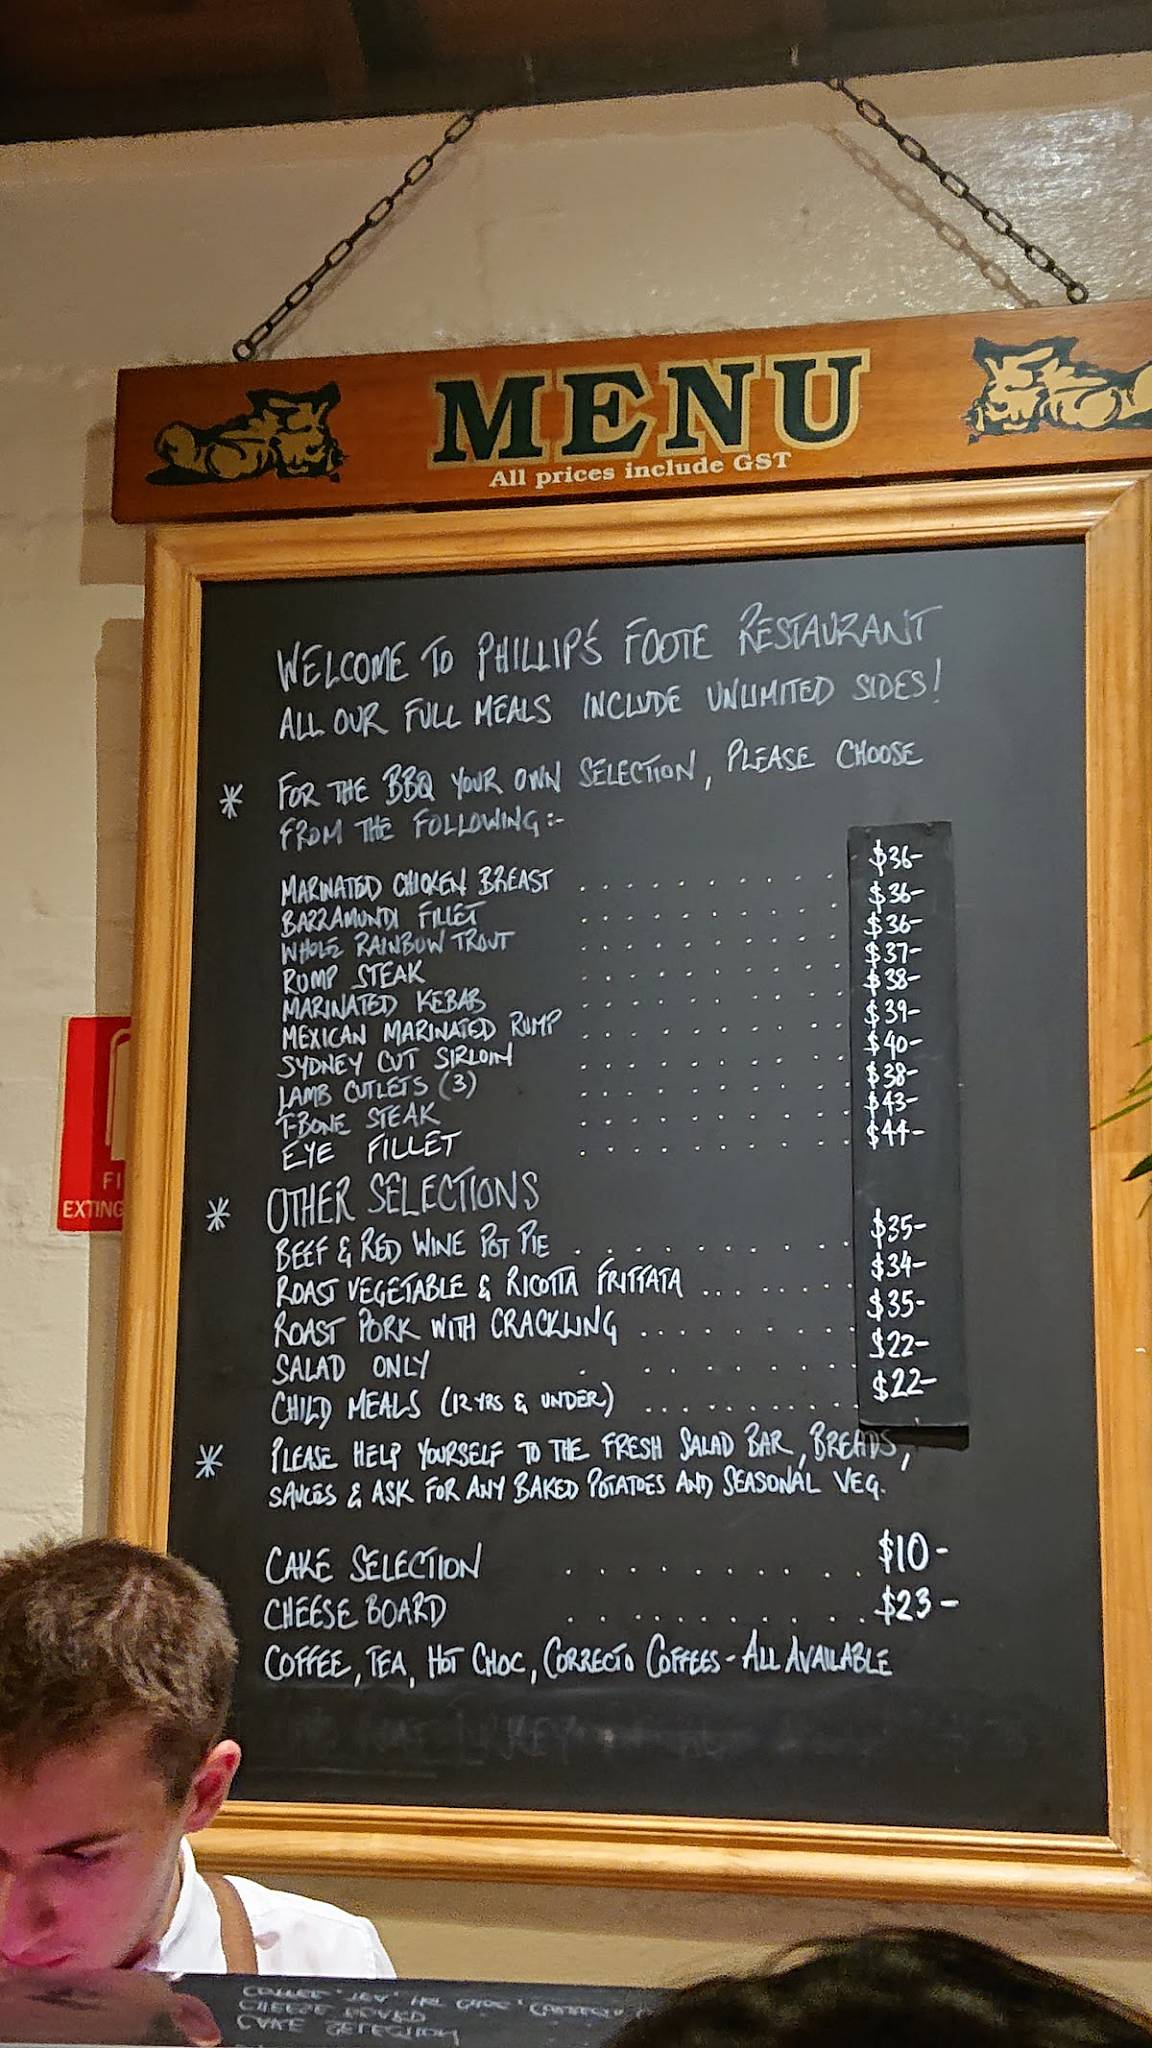 MENU
All prices include GST
WELCOME TO PHILLIP'S FOOTE RESTAURANT
ALL OUR FULL MEALS INCLUDE UNLIMITED SIDES!
* FOR THE BBQ YOUR OWN SELECTION, PLEASE CHOOSE
FROM THE FOLLOWING:-
MARINATED CHICKEN BREAST . . . . . . . . . . $36-
BARRAMUNDI FILLET . . . . . . . . . . $36-
WHOLE RAINBOW TROUT . . . . . . . . . . $36-
RUMP STEAK . . . . . . . . . . $37-
MARINATED KEBAB . . . . . . . . . . $38-
MEXICAN MARINATED RUMP . . . . . . . . . . $39-
SYDNEY CUT SIRLOIN . . . . . . . . . . $40-
LAMB CUTLETS (3) . . . . . . . . . . $38-
T-BONE STEAK . . . . . . . . . . $43-
EYE FILLET . . . . . . . . . . $44-
* OTHER SELECTIONS
BEEF & RED WINE POT PIE . . . . . . . . . . $35-
ROAST VEGETABLE & RICOTTA FRITTATA . . . . . . . $34-
ROAST PORK WITH CRACKLING . . . . . . . . $35-
SALAD ONLY . . . . . . . . $22-
CHILD MEALS (12 YRS & UNDER) . . . . . . . . . . $22-
* PLEASE HELP YOURSELF TO THE FRESH SALAD BAR, BREADS,
SAUCES & ASK FOR ANY BAKED POTATOES AND SEASONAL VEG.
CAKE SELECTION . . . . . . . . . . $10-
CHEESE BOARD . . . . . . . . . . $23-
COFFEE, TEA, HOT CHOC, CORRECTO COFFEES - ALL AVAILABLE
FI
EXTING